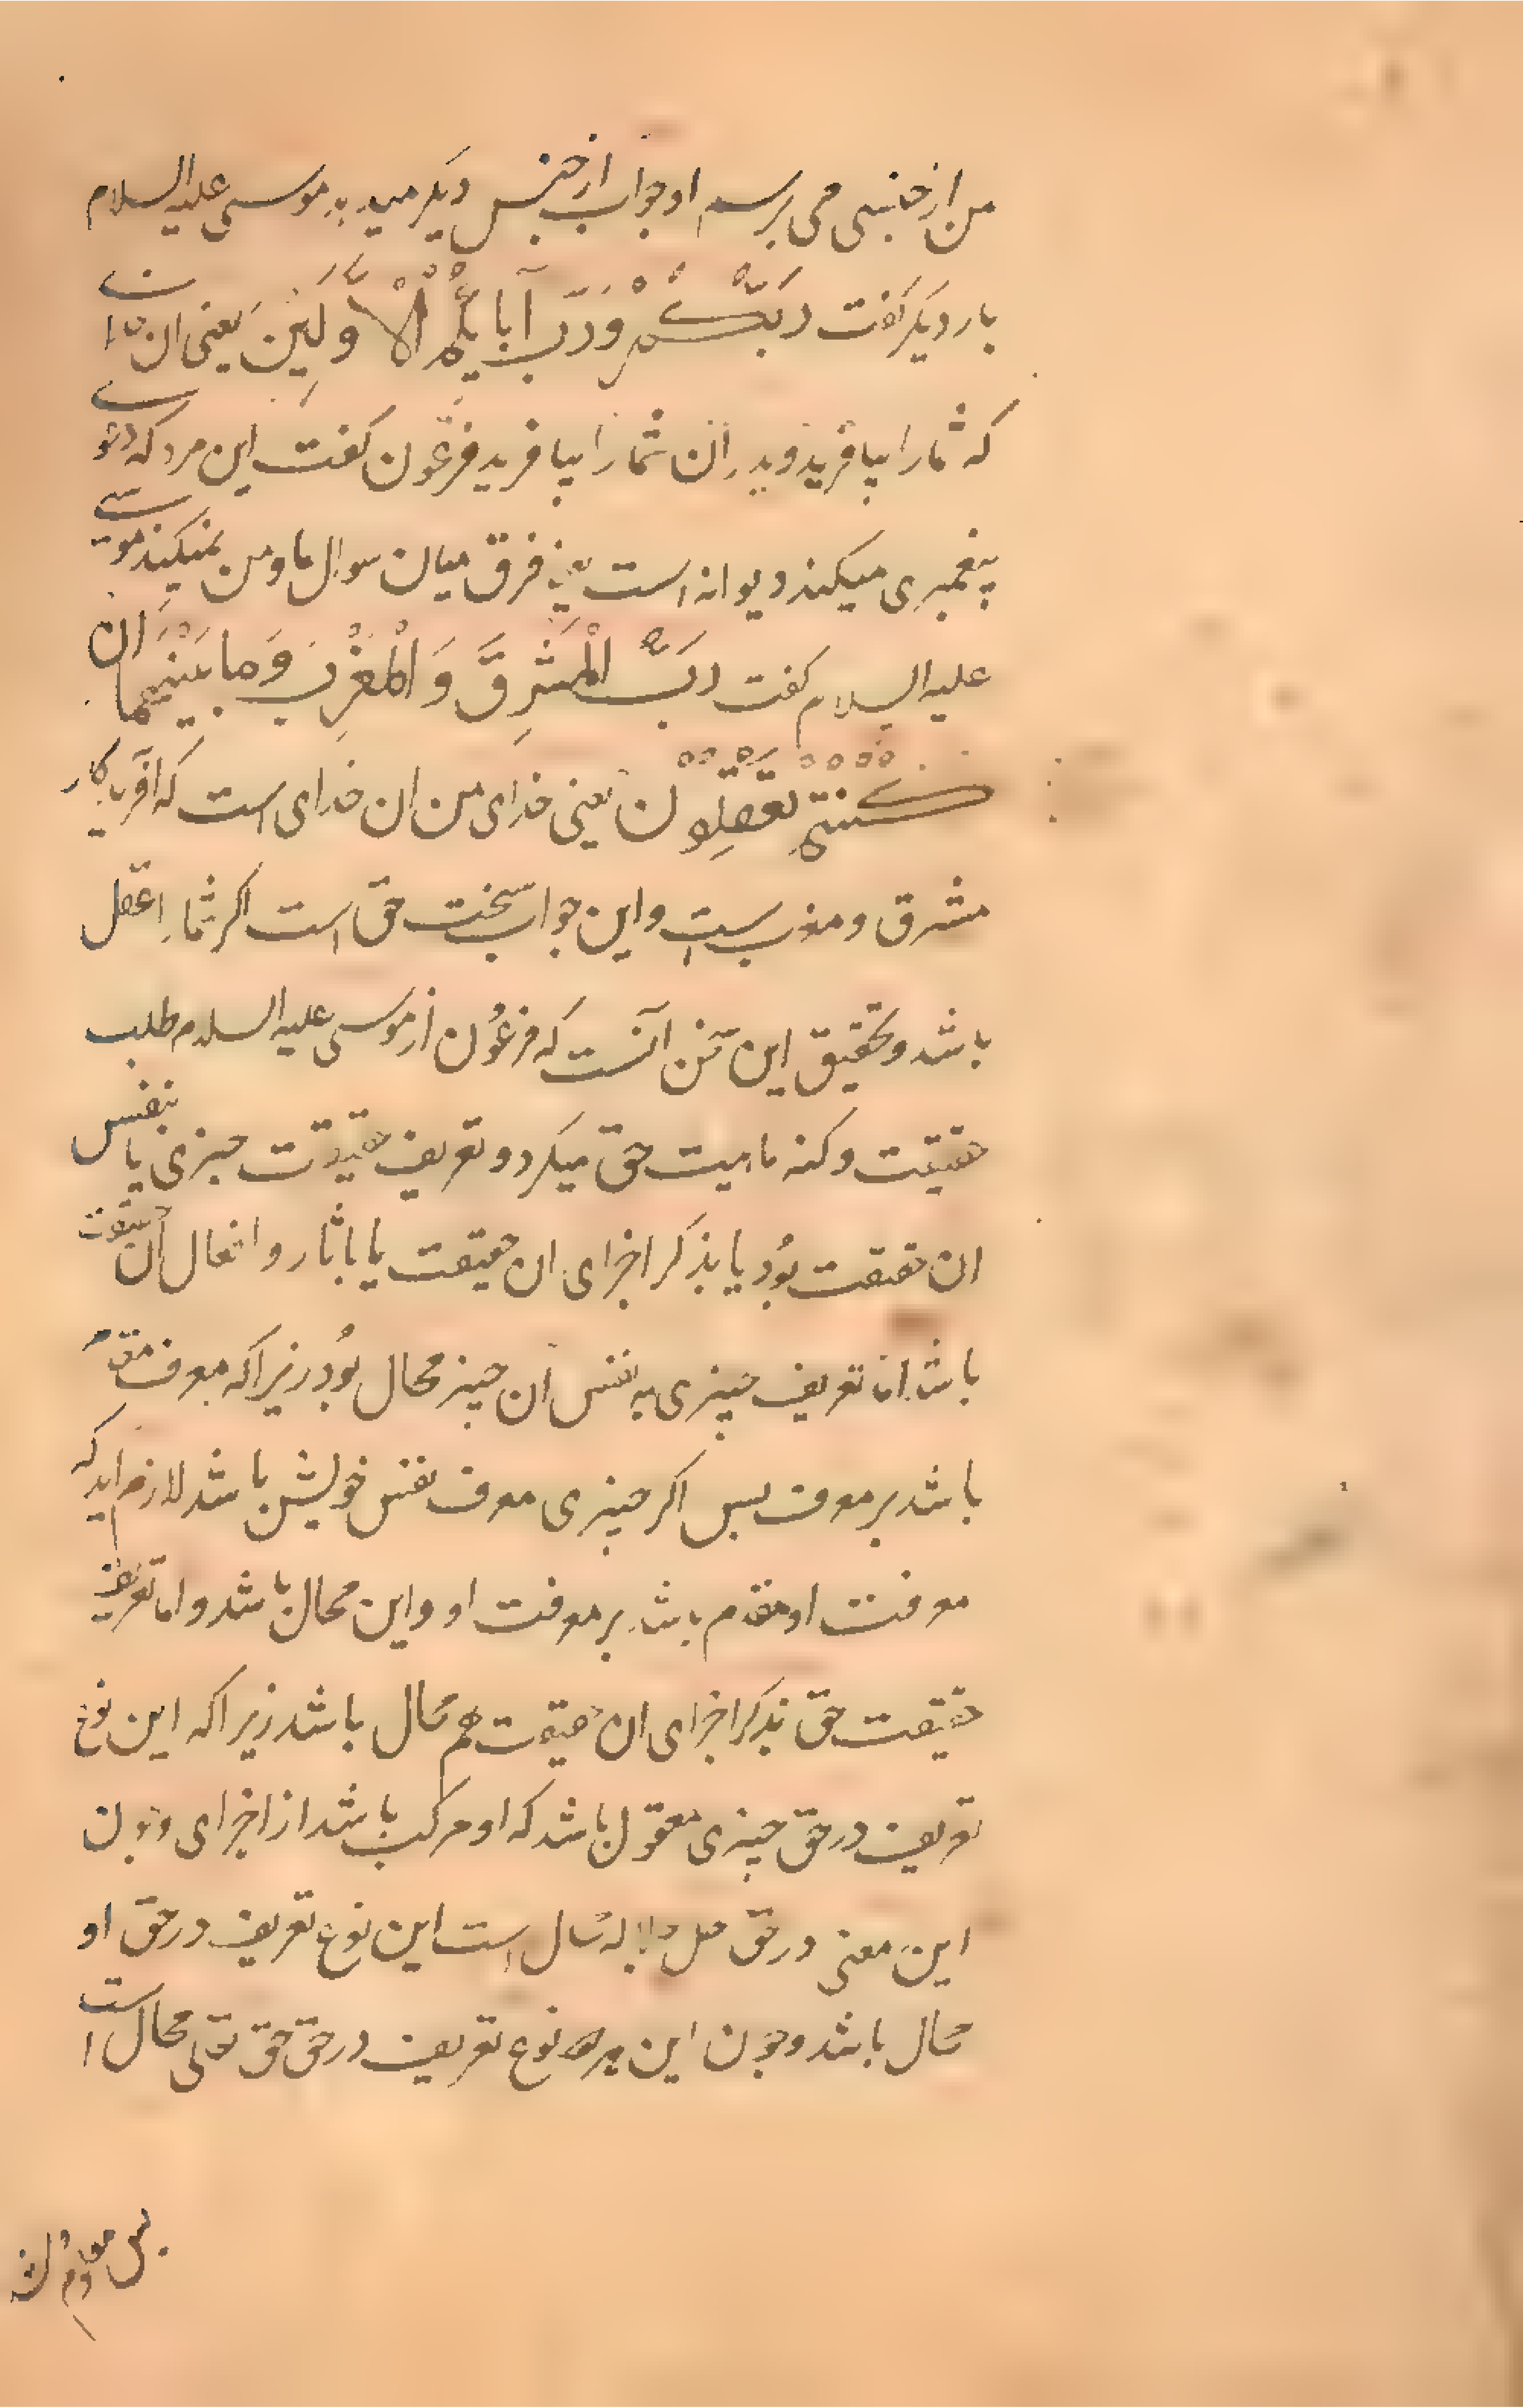 من از جنسی می پرسم او جواب از جنس دیگر میدهد موسی علیه السلام
بار دیگر کفت رَبُّكُمْ وَرَبُّ آبَائِكُمُ الْأَوَّلِينَ یعنی ان
که شما را بیافرید و پدران شما را بیافرید فرعون کفت این مرد که دعوی
پیغمبری میکند دیوانه است یعنی فرق میان سوال ما و من نمیکند موسی
علیه السلام کفت رَبُّ الْمَشْرِقِ وَالْمَغْرِبِ وَمَا بَيْنَهُمَا ان
كُنْتُمْ تَعْقِلُونَ یعنی خدای من ان خدای است که آفریدکار
مشرق و مغرب است و این جواب سخت حق است اکر شما را عقل
باشد و تحقیق این سخن آنست که فرعون از موسی علیه السلام طلب
حقیقت و کنه ماهیت حق میکرد و تعریف حقیقت چیزی یا بنفس
ان حقیقت بود یا بذکر اجزای ان حقیقت یا باثار و افعال آن حقیقت
باشد اما تعریف چیزی به نفس آن چیز محال بود زیرا که معرف مقدم
باشد بر معرف پس اکر چیزی معرف نفس خویش باشد لازم اید که
معرفت او مقدم باشد بر معرفت او و این محال باشد و اما تعریف
حقیقت حق بذکر اجزای ان حقیقت هم محال باشد زیرا که این نوع
تعریف در حق چیزی معقول باشد که او مرکب باشد از اجزای و چون
این معنی در حق جل جلاله محال است این نوع تعریف در حق او
محال باشد و چون این هر دو نوع تعریف در حق حق تعالی محال است
پس معلوم شد